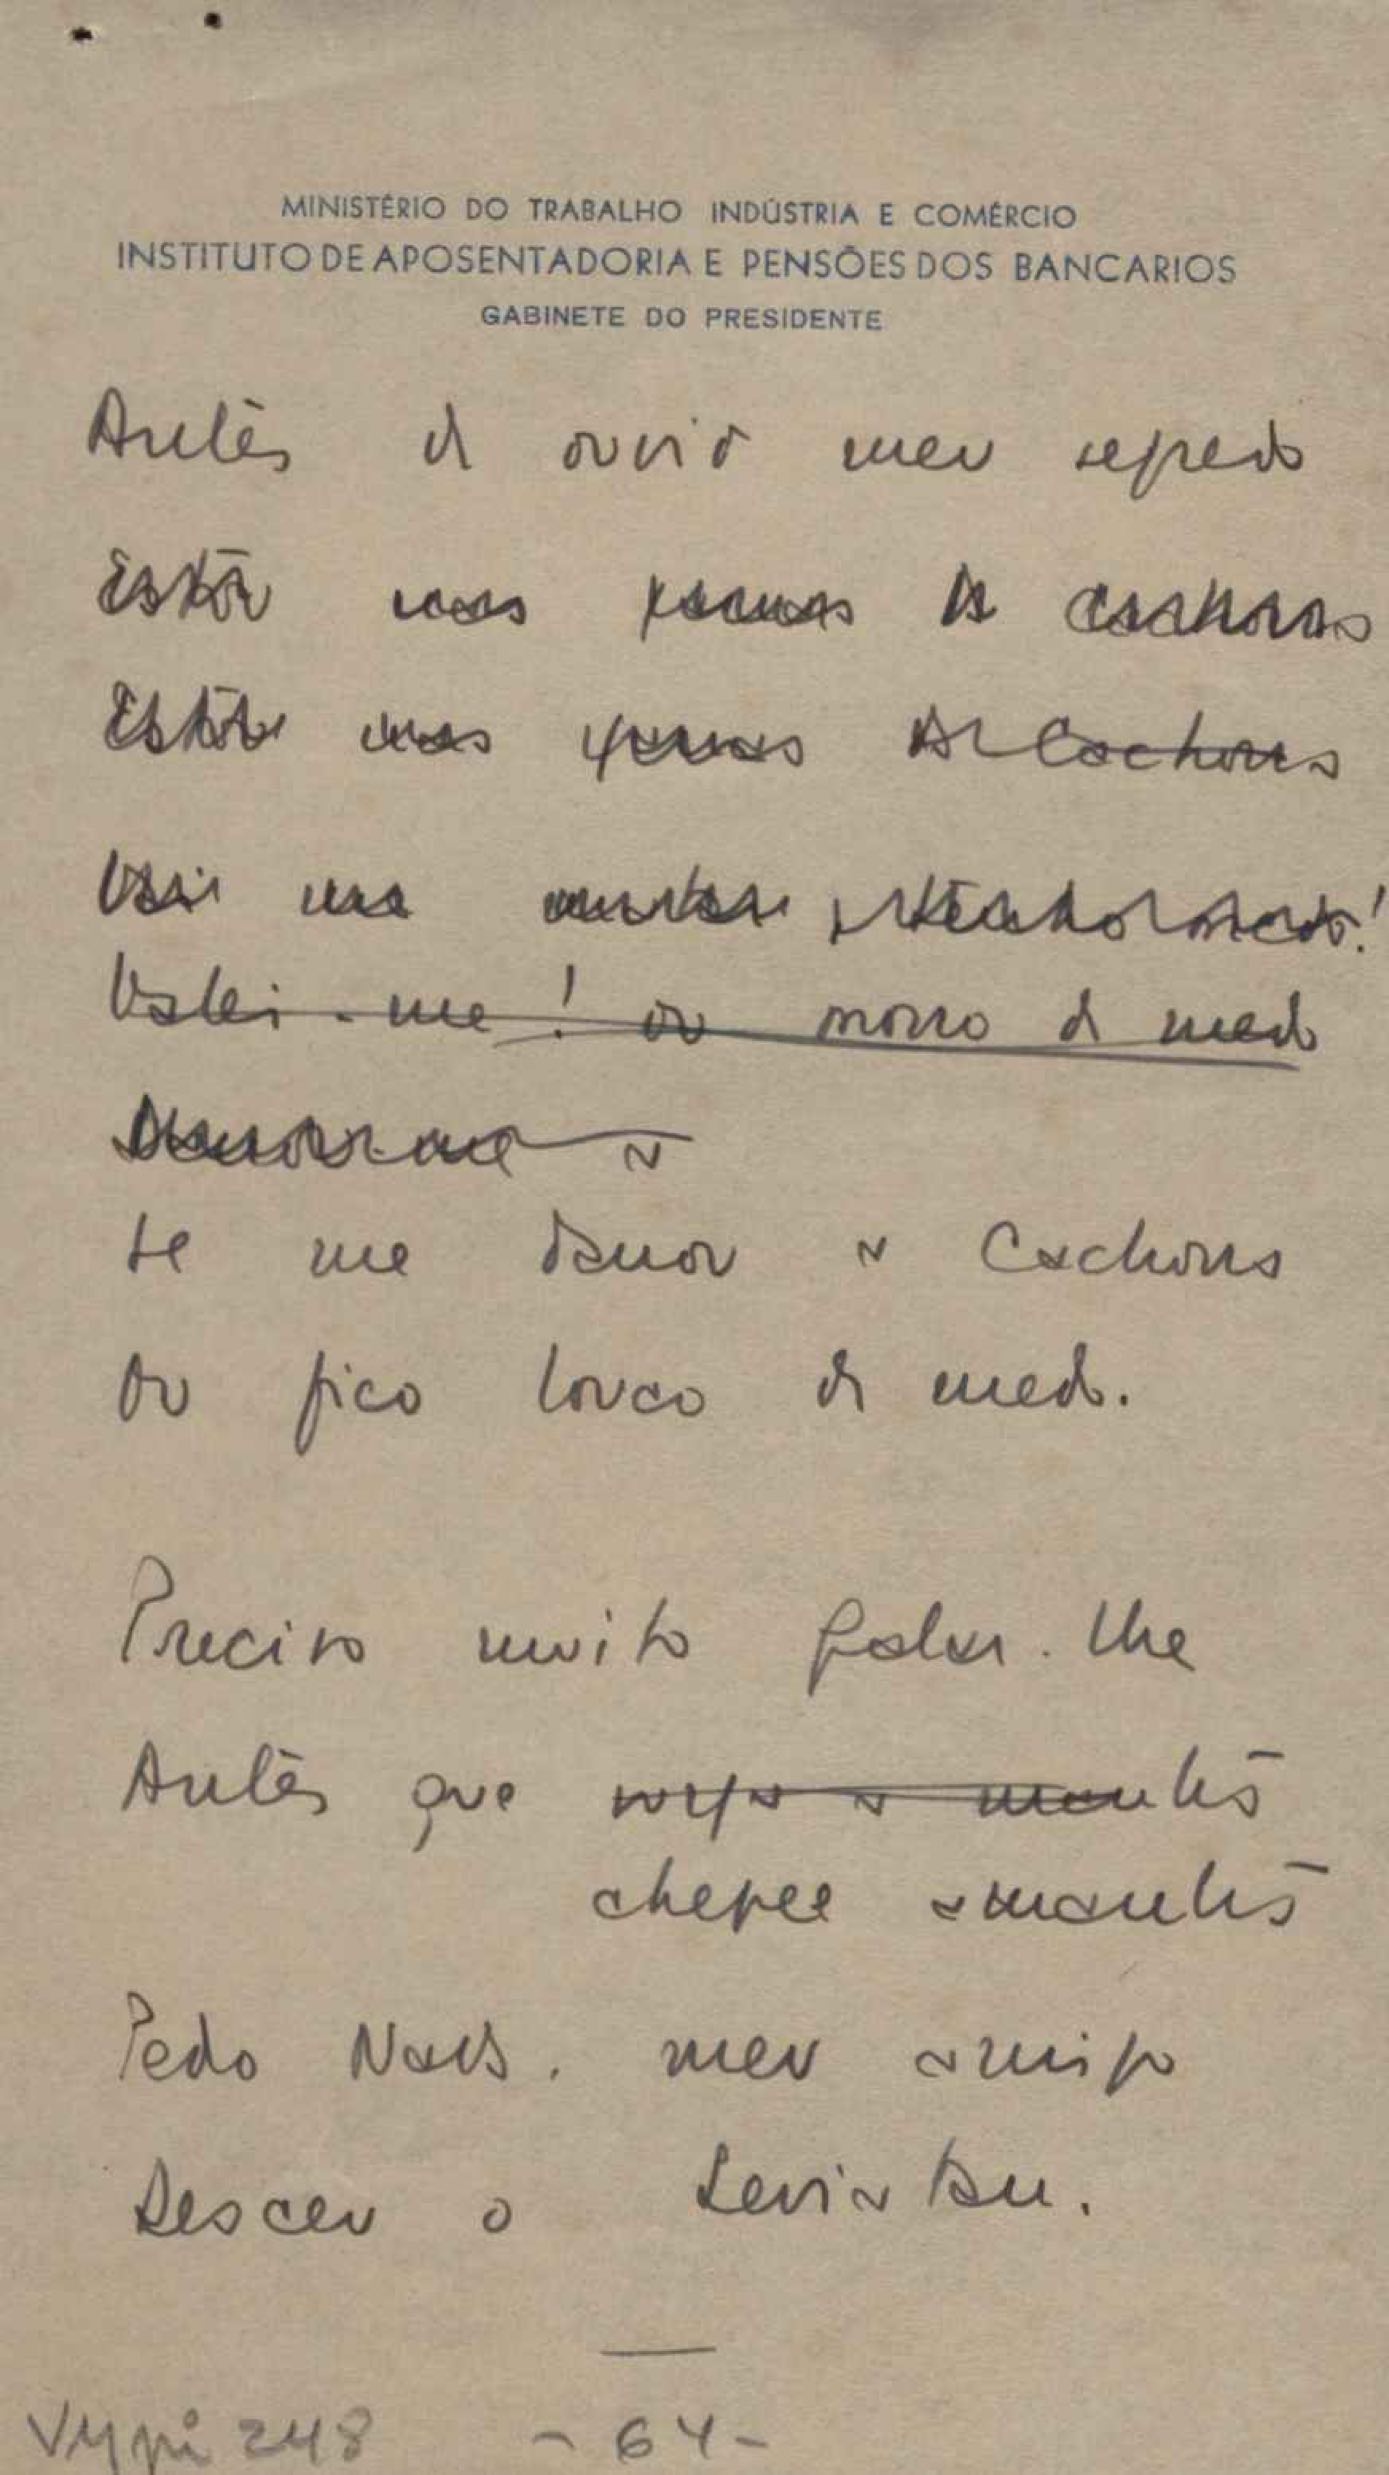 MINISTÉRIO DO TRABALHO INDÚSTRIA E COMÉRCIO
INSTITUTO DE APOSENTADORIA E PENSÕES DOS BANCARIOS
GABINETE DO PRESIDENTE
Antes de ouvir meu segredo
Estão nas de cachorros
Estão nas de Cachorros
Valei-me! ou morro de medo
a
Se me danou a Cachorra
Ou fico louco de medo.
Preciso muito falar-lhe
Antes que surja a manhã
chegue a manhã
Pedro Nava, meu amigo
Desceu o Leviatan.
Vypi 248 - 64 -